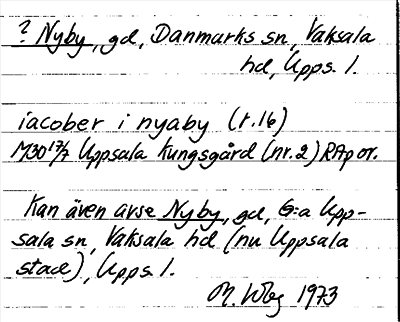 ? Nyby, gd, Danmarks sn, Vaksala
hd, Upps. l.
iacober i nyaby (r.16)
1430 17/7 Uppsala Kungsgård (nr. 2) RAp or.
Kan även avse Nyby, gd, G:a Upp-
sala sn, Vaksala hd (nu Uppsala
stad), Upps. l.
M. Wbg 1973